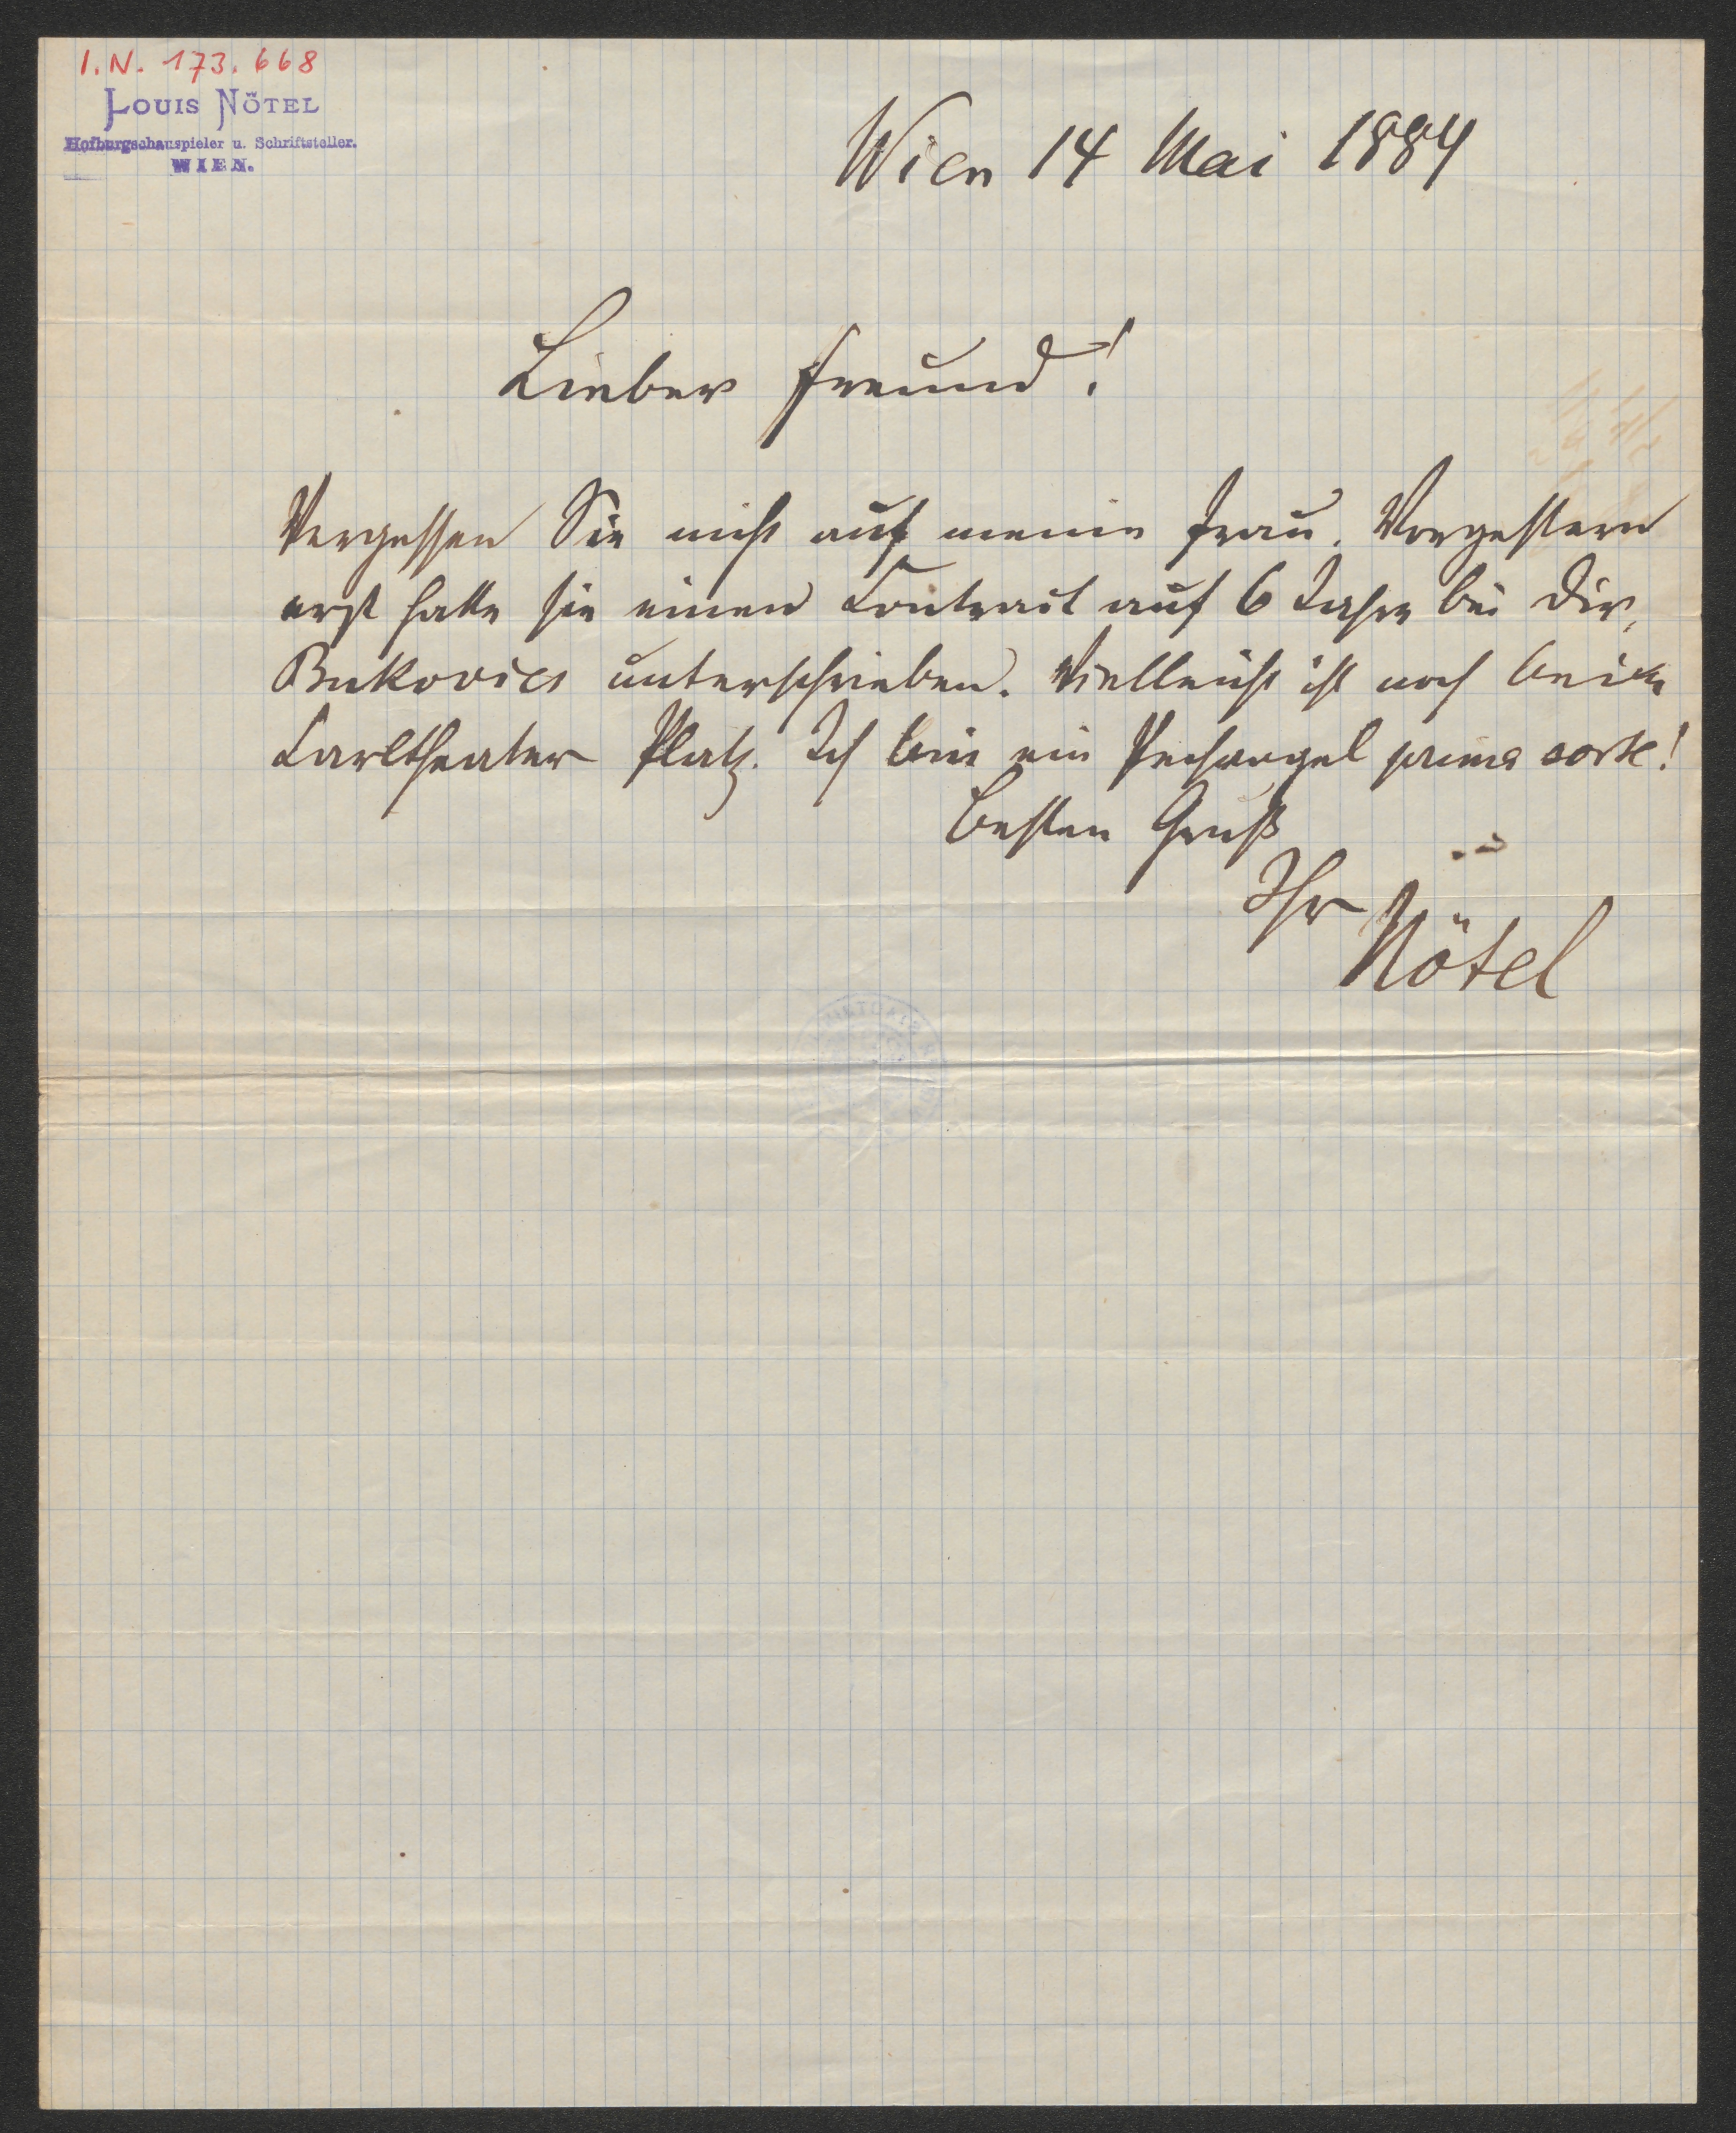 I.N. 173.668
LOUIS NÖTEL
Hofburgschauspieler u. Schriftsteller.
WIEN.
Wien 14 Mai 1884
Lieber Freund!
Vergessen Sie nicht auf meine Frau. Vorgestern
erst hatte sie einen Contract auf 6 Jahre bei Dir.
Bukovics unterschrieben. Vielleicht ist noch beim
Carltheater Platz. Ich bin ein Pechvogel prima sorte!
Besten Gruß
Ihr
Nötel